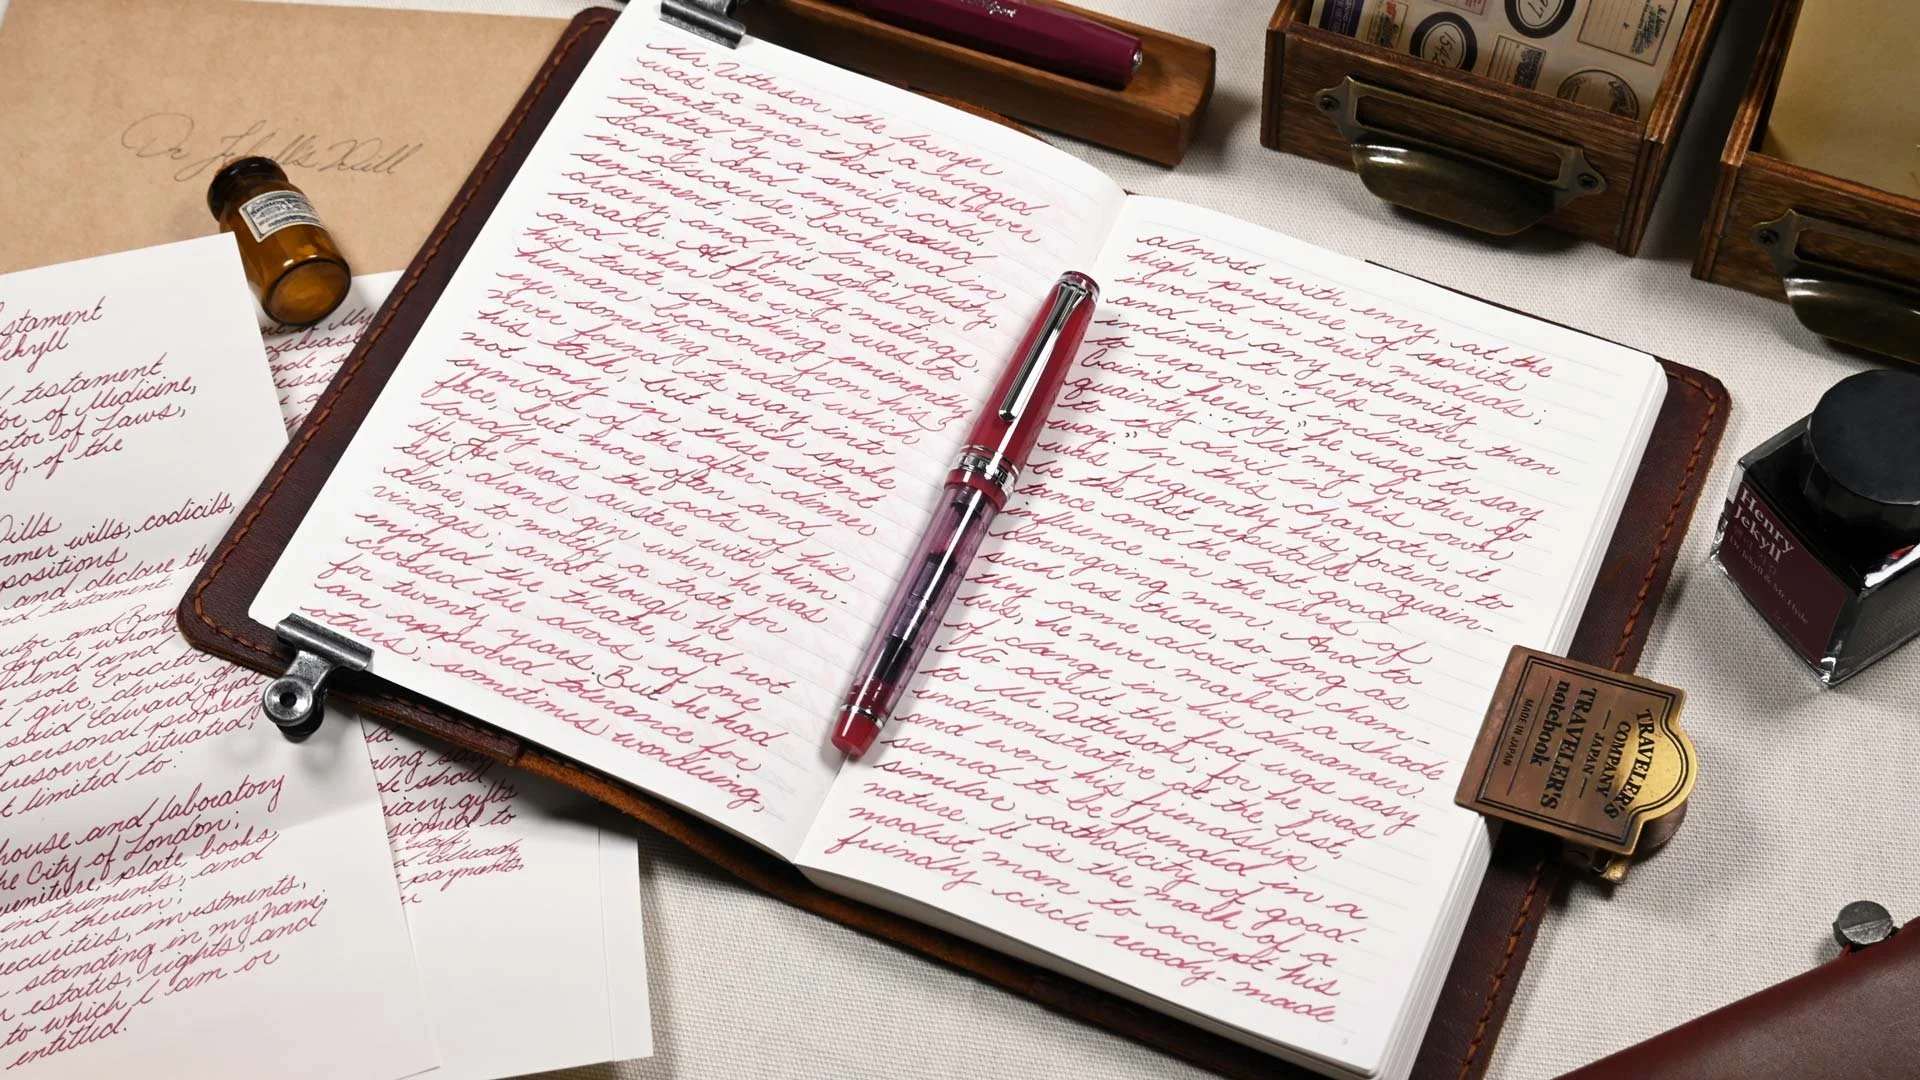 Dr Jekyll's Will
stament
Jekyll
testament
of Medicine,
ctor of Laws,
ty, of the
Wills
rmer wills, codicils,
positions
and declare th
nd testament.
and
Hyde, whom
friend and
sole Executor
I give, devise,
said Edward Hyde
personal property
situated,
t limited to:
house and laboratory
he City of London;
plate, books
instruments, and
ned therein;
securities, investments,
standing in my name;
estates, rights, and
to which I am or
entitled.
shall
gifts
to
already
payments,
Mr Utterson the lawyer
was a man of a rugged
countenance that was never
lighted by a smile; cold,
scanty and embarrassed
in discourse; backward in
sentiment; lean, long, dusty,
dreary and yet somehow
lovable. At friendly meetings,
and when the wine was to
his taste, something eminently
human beaconed from his
eye; something indeed which
never found its way into
his talk, but which spoke
not only in these silent
symbols of the after-dinner
face, but more often and
loudly in the acts of his
life. He was austere with him-
self; drank gin when he was
alone, to mortify a taste for
vintages; and though he
enjoyed the theatre, had not
crossed the doors of one
for twenty years. But he had
an approved tolerance for
others; sometimes wondering,
almost with envy, at the
high pressure of spirits
involved in their misdeeds;
and in any extremity
inclined to help rather than
to reprove. "I incline to
Cain's heresy," he used to say
quaintly: "I let my brother go
to the devil in his own
way." In this character, it
was frequently his fortune to
be the last reputable acquain-
tance and the last good
influence in the lives of
downgoing men. And to
such as these, so long as
they came about his cham-
bers, he never marked a shade
of change in his demeanour.
No doubt the feat was easy
to Mr. Utterson; for he was
undemonstrative at the best,
and even his friendship
seemed to be founded in a
similar catholicity of good-
nature. It is the mark of a
modest man to accept his
friendly circle ready-made
Henry
Jekyll
Dr Jekyll & Mr Hyde
TRAVELER'S
COMPANY
JAPAN
TRAVELER'S
notebook
MADE IN JAPAN
1545